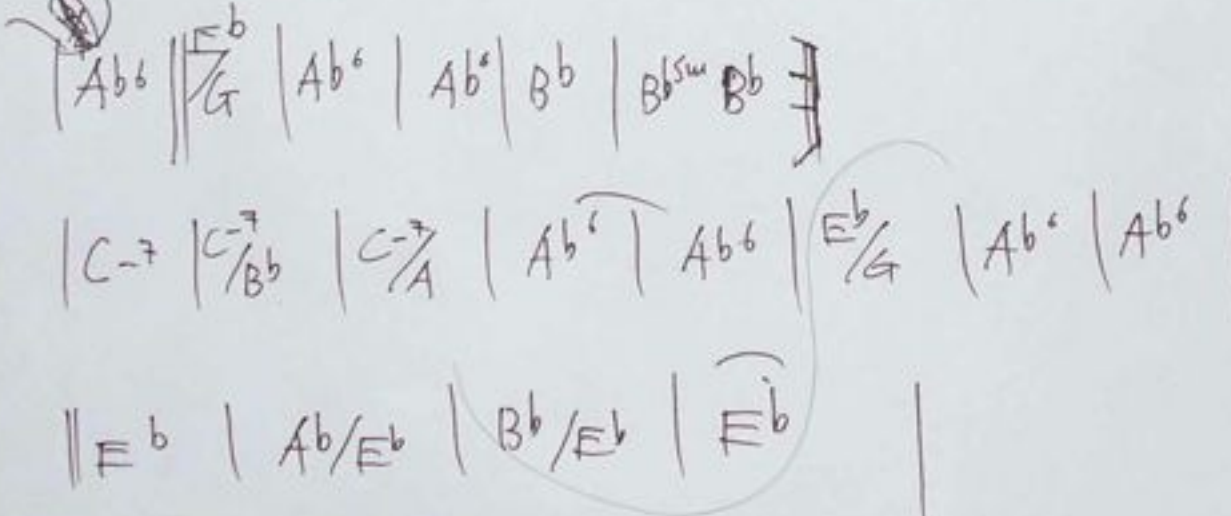 | Ab6 || Eb/G | Ab6 | Ab6 | Bb | Bbsus Bb ]
| C-7 | C-7/Bb | C-7/A | Ab6 | Ab6 | Eb/G | Ab6 | Ab6
|| Eb | Ab/Eb | Bb/Eb | Eb |